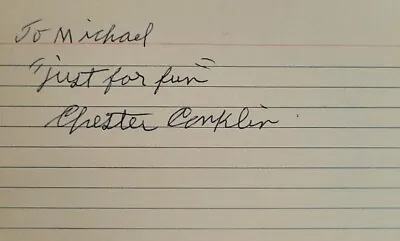 To Michael
"just for fun"
Chester Conklin